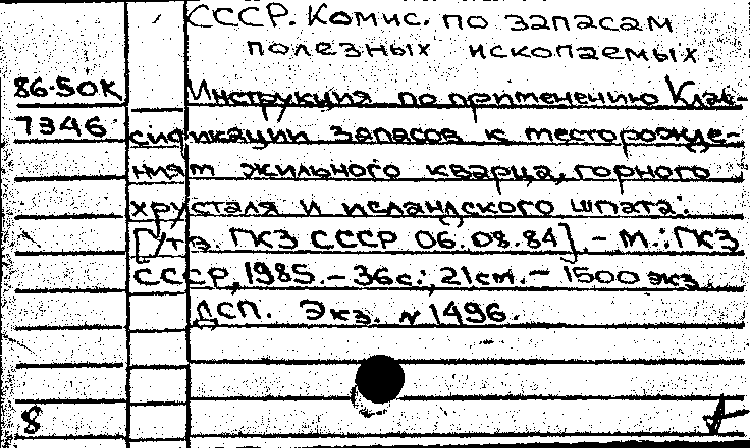 СССР. Комис. по запасам
полезных ископаемых.
86-50К Инструкция по применению Клас-
7346 сификации запасов к месторожде-
ниям жильного кварца, горного
хрусталя и исландского шпата:
[Утв. ГКЗ СССР 06.08.84]. – М.: ГКЗ
СССР, 1985. – 36с.; 21см. – 1500 экз.
ДСП. Экз. № 1496.
8